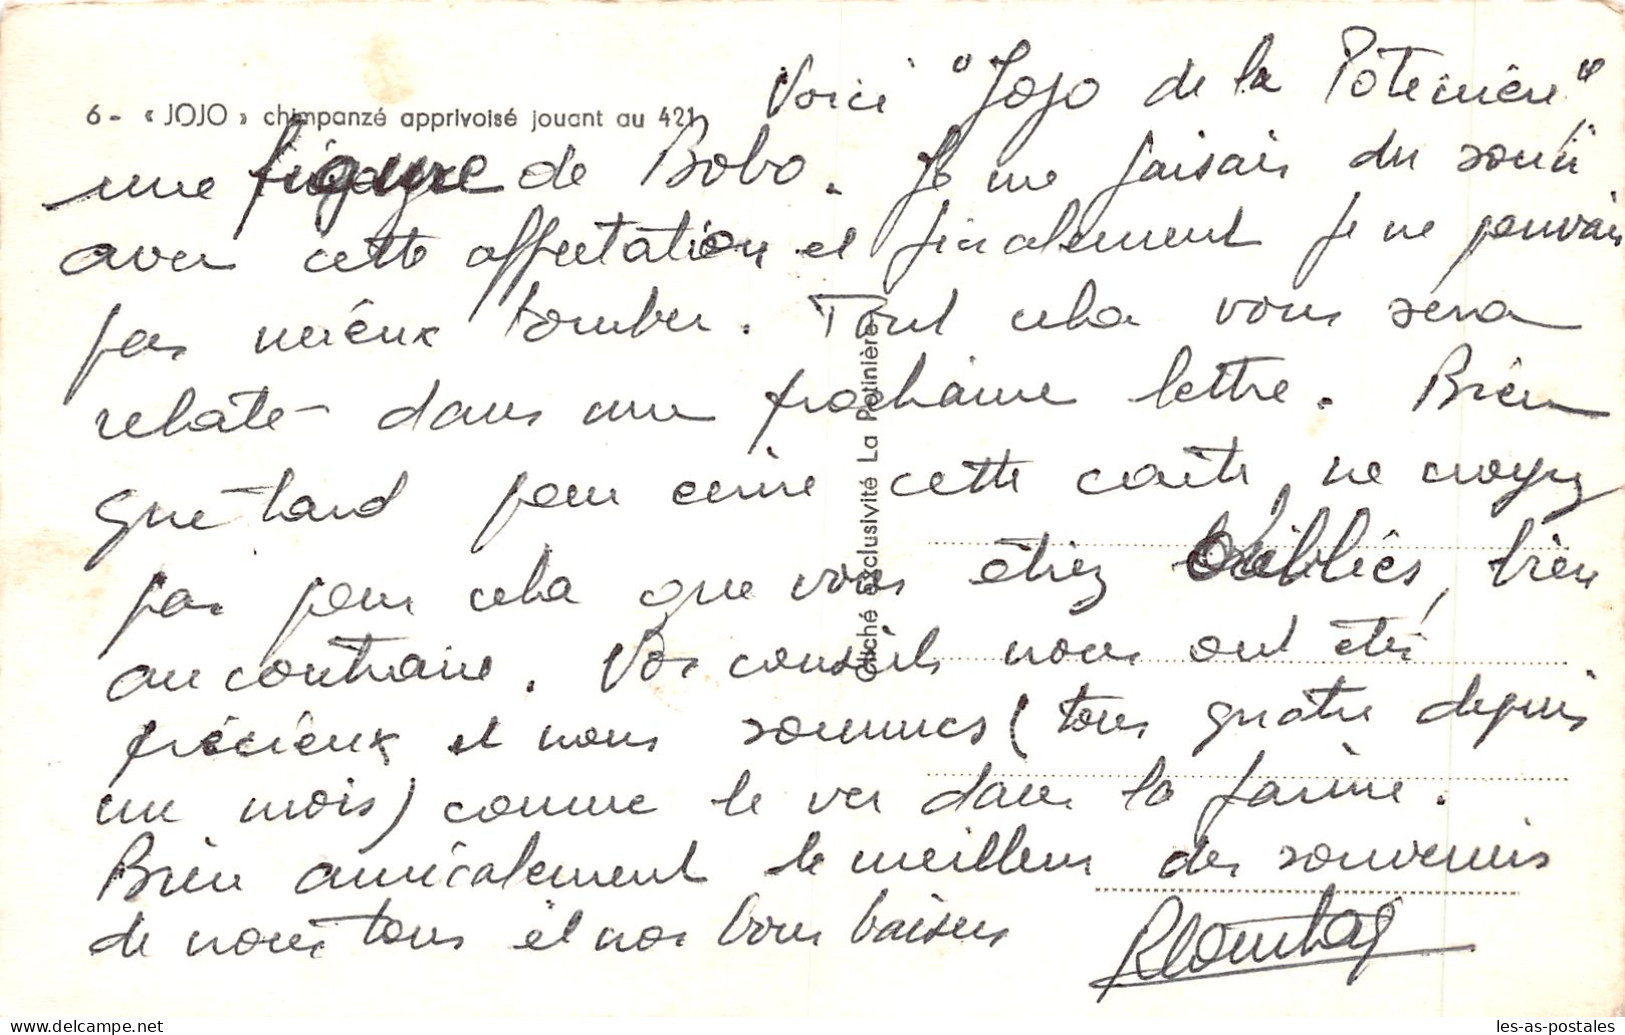 6 - « JOJO » chimpanzé apprivoisé jouant au 421
Voici "Jojo de la Potinière",
une figure de Bobo. Je me faisais du souci
avec cette affectation et finalement je ne pouvais
pas mieux tomber. Tout cela vous sera
relaté dans une prochaine lettre. Bien
que tard pour écrire cette carte, ne croyez
pas pour cela que vous étiez oubliés, bien
au contraire. Vos conseils nous ont été
précieux et nous sommes (tous quatre depuis
un mois) comme le ver dans la farine.
Bien amicalement le meilleur des souvenirs
de nous tous et nos bons baisers
Cliché Exclusivité La Potinière
les-as-postales